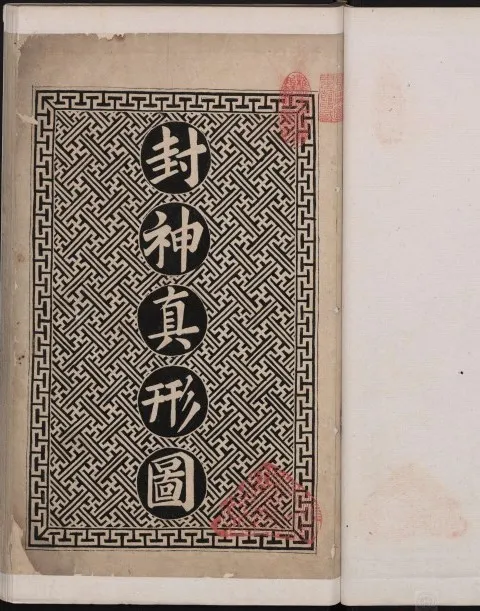 封神真形圖